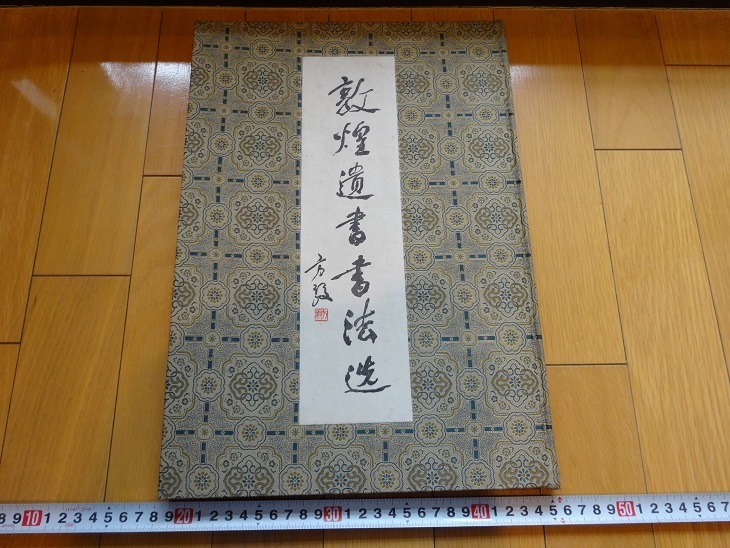 敦煌遗书书法选
方毅
8 9 10 1 2 3 4 5 6 7 8 9 20 1 2 3 4 5 6 7 8 9 30 1 2 3 4 5 6 7 8 9 40 1 2 3 4 5 6 7 8 9 50 1 2 3 4 5 6